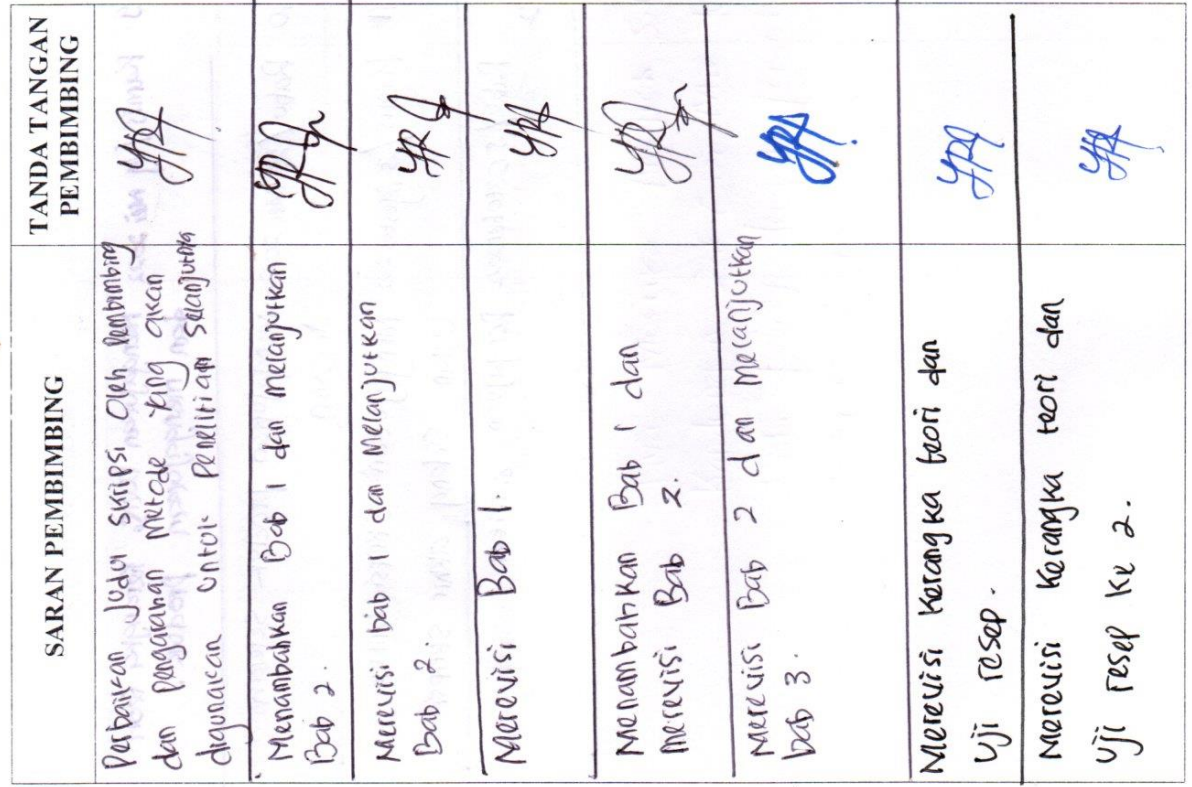 SARAN PEMBIMBING
TANDA TANGAN
PEMBIMBING
Perbaikan Judul skripsi oleh Pembimbing
dan pengarahan metode yang akan
digunakan untuk penelitian selanjutnya
Menambahkan Bab 1 dan melanjutkan
Bab 2.
Merevisi bab 1 dan melanjutkan
Bab 2.
Merevisi Bab 1.
Menambahkan Bab 1 dan
merevisi Bab 2.
Merevisi Bab 2 dan melanjutkan
bab 3.
Merevisi Kerangka teori dan
Uji resep.
Merevisi Kerangka teori dan
Uji resep Ke 2.